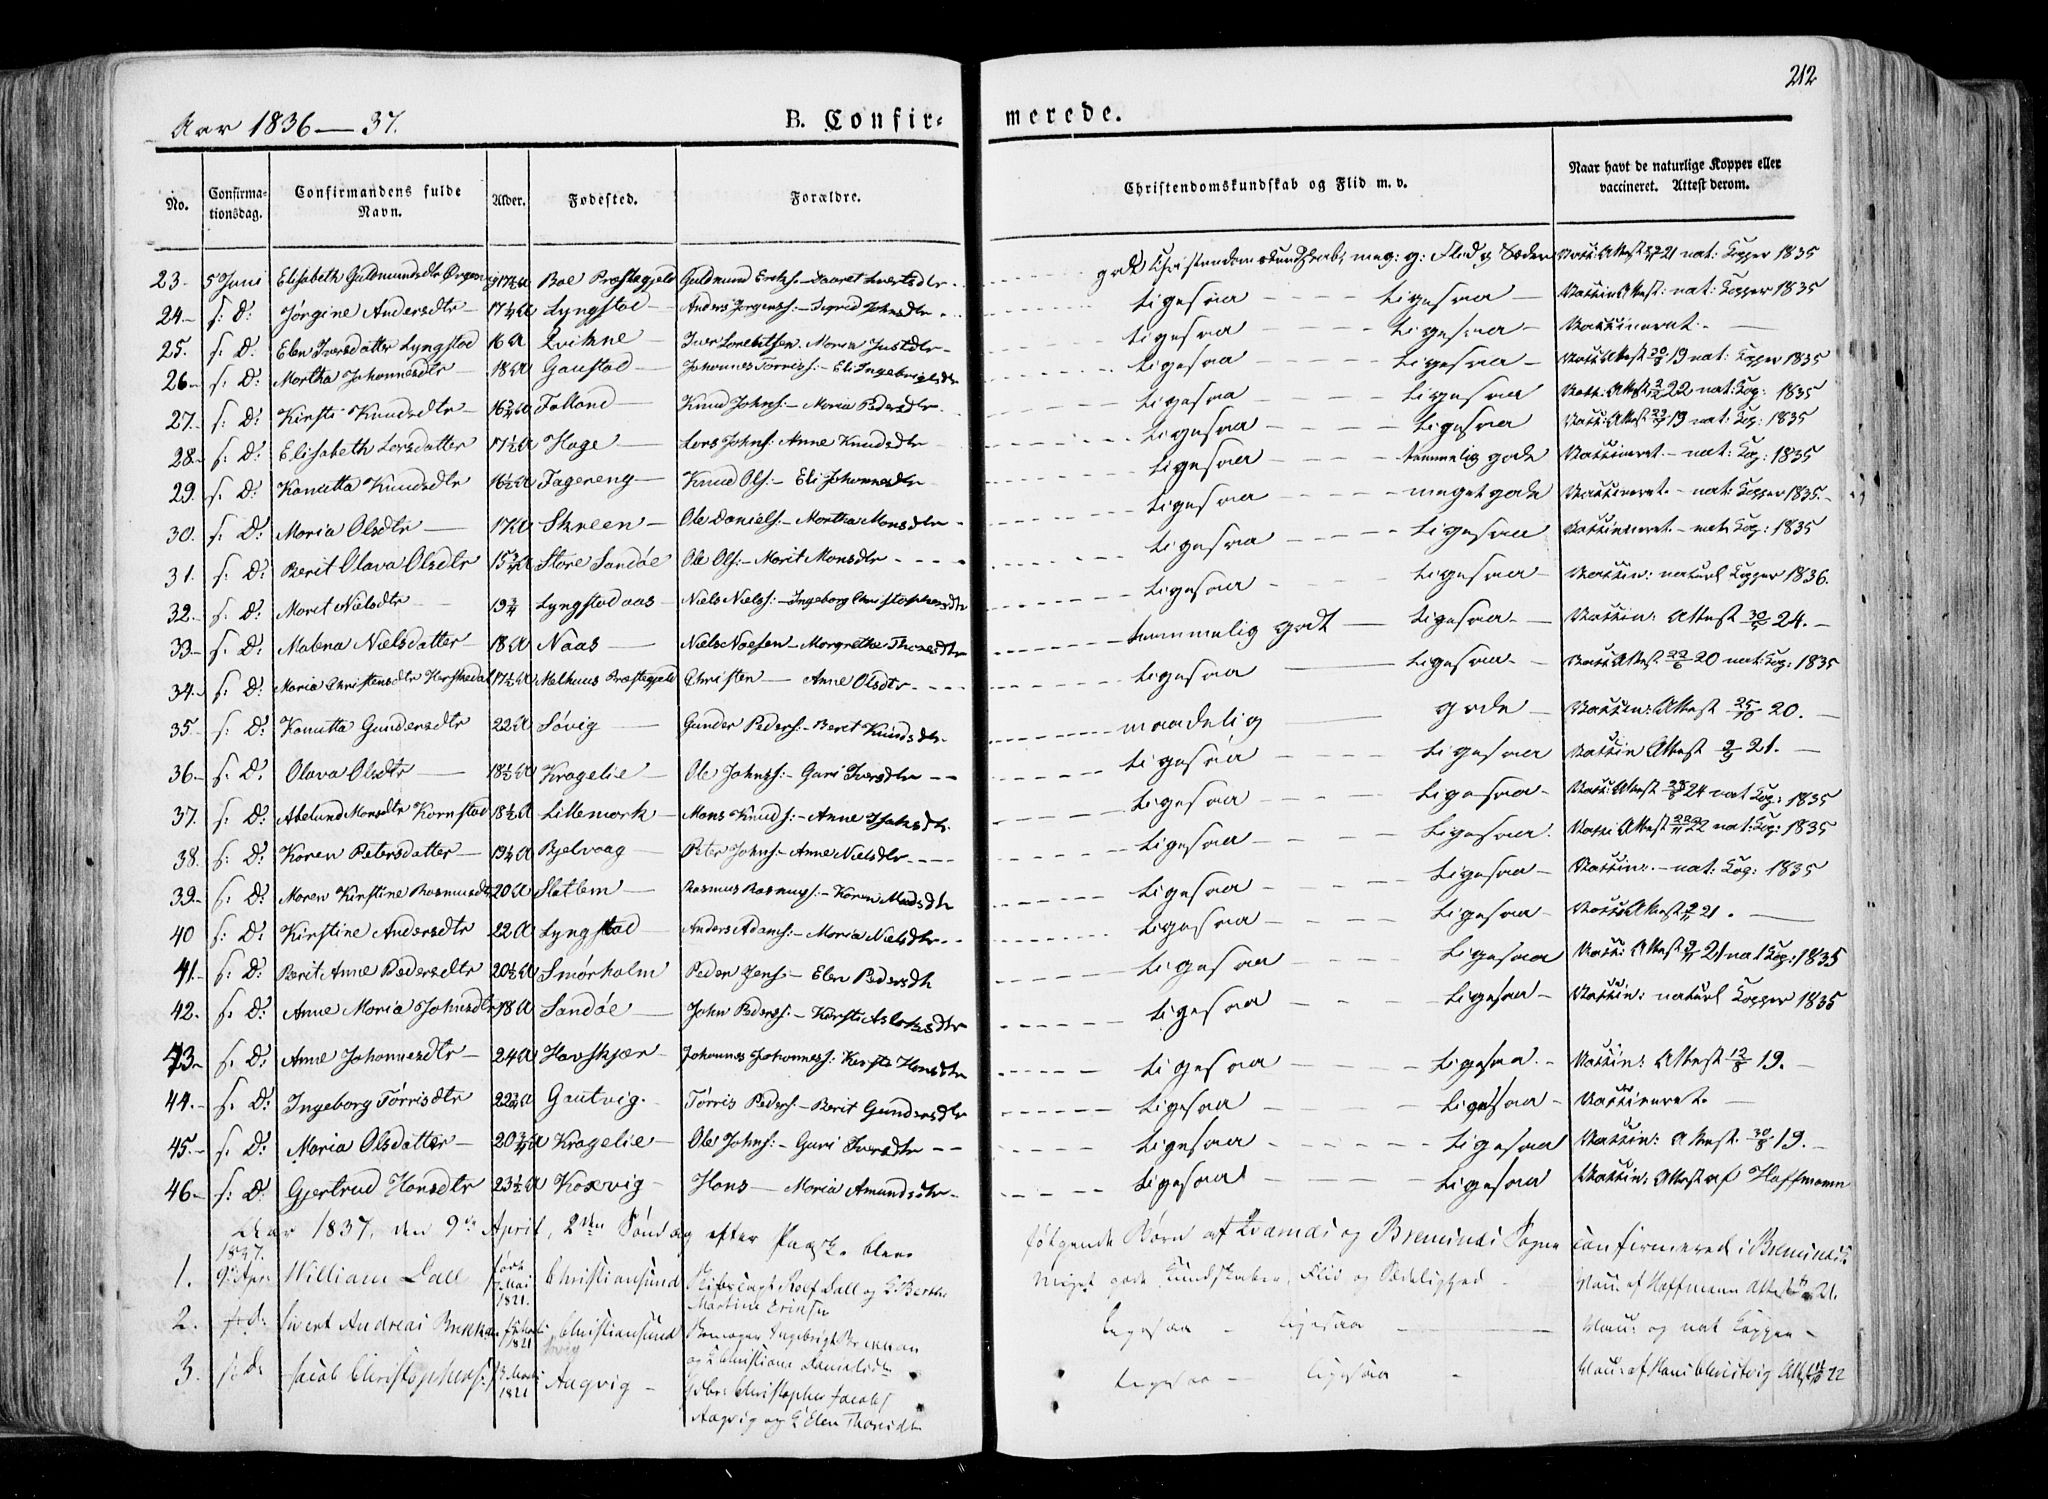 212
Aar 1836 — 37. B. Confir- merede.
No. Confirma-tionsdag. Confirmandens fulde Navn. Alder. Fødested. Forældre. Christendomskundskab og Flid m. v. Naar havt de naturlige Kopper eller vaccineret. Attest derom.
23. 5 Juni Elisabeth Guldmundsdtr Boe Præstegjeld Guldmund godt Christendomskundskab, meg: g: Flid g Sæder Attest 21 nat: Kopper 1835
24. s: D: Jørgine Andersdtr 17½ A Lyngstad Anders Jørgens: — Sigrid Johnsdtr ligesaa ligesaa Attest: nat: Kopper 1835
25. s: D: Elen Iversdatter Lyngstad 16 A Qvihne Iver Lorentsen Maria Justdtr ligesaa ligesaa Vaccineret.
26 s: D: Martha Johannesdtr 18 A Gaustad Johannes Tørriss: — Eli Ingebrigtsdtr ligesaa ligesaa Attest 19 nat: Kopper 1835
27. s: D: Kirsti Knudsdtr 16¾ A Folland Knud Johns: — Maria Pedersdtr ligesaa ligesaa Attest 22 nat: Kop: 1835
28. s: D: Elisabeth Larsdatter 17½ A Hage Lars Johns: Anne Knudsdtr ligesaa ligesaa Attest 19 nat: Kop: 1835
29. s: D: Kanutta Knudsdtr 16½ A Fagereng Knud Ols: — Eli Johannesdtr ligesaa temmelig gode Vaccineret. — nat: Kop: 1835
30. s: D: Maria Olsdtr 17 A Skreen Ole Daniels: — Martha Monsdtr ligesaa meget gode Vaccineret. — nat: Kopper 1835.
31. s: D: Berit Olava Olsdtr 15¾ A Store Sandøe Ole Ols: — Marit Monsdtr ligesaa ligesaa Vaccineret — nat: Kop: 1835
32. s: D: Marit Nielsdtr 19¾ Lyngstadaas Niels Niels: — Ingeborg Christophersdtr ligesaa ligesaa Vaccin: naturl Kopper 1836.
33. s: D: Malena Nielsdatter 18 A Naas Niels Naesen — Margrethe temmelig godt ligesaa Vaccin: Attest 24.
34. s: D: Maria Christensdtr 17½ A Melhuus Præstegjeld Christen — Anne Olsdtr ligesaa ligesaa Attest 20 nat: Kop: 1835
35. s: D: Kanutta Gundersdtr 22 A Søvig Gunder Peders: — Berit Knudsdtr maadelig gode Vaccin: Attest 25/10 20.
36. s: D: Olava Olsdtr 18½ A Kragelie Ole Johns: — Guri Iversdtr ligesaa ligesaa Vaccin Attest 21.
37. s: D: Abelund Monsdtr Kornstad 18½ A Lillemork Mons Knuds: — Anne ligesaa ligesaa Attest 24 nat Kop: 1835
38. s: D: Karen Petersdatter 19¼ A Bjelvaag Peter Johns: — Anne Nielsdtr ligesaa ligesaa Attest 22 nat: Kop: 1835
39. s: D: Maren Kirstine Rasmusdtr 20 A Slatlem Rasmus Rasmus: — Karen Madsdtr ligesaa ligesaa Vaccin: — nat: Kop: 1835
40 s: D: Kirstine Andersdtr 22 A Lyngstad Anders Adams: — Maria Nielsdtr ligesaa ligesaa Attest 21.
41. s: D: Berit Anne Pedersdtr 20½ A Smørholm Peder Jens — Elen Pedersdtr ligesaa ligesaa Attest 21 nat Kop: 1835
42. s: D: Anne Maria Johnsdtr 18 A Sandøe John Peders: — Kirsti Aslaksdtr ligesaa ligesaa Vaccin: naturl Kopper 1835
43 s: D: Anne Johannesdtr 24 A Havskjær Johannes Johanness: Kirsti Hansdtr ligesaa ligesaa Vaccin: Attest 19.
44. s: D: Ingeborg Tørrisdtr 22¾ A Gautvig. Tørris Peders: — Berit Gundersdtr ligesaa ligesaa Vaccineret.
45. s: D: Maria Olsdatter 20¾ A Kragelie Ole Johns: — Guri Iversdtr ligesaa ligesaa Vaccin: Attest 30/8 19.
46 s: D: Gjertrud Hansdtr 23½ A Koxvig Hans — Maria Amundsdtr ligesaa ligesaa Vaccin: Attest af Hoffmann
Aar 1837, den 9de April, 2den Søndag efter Paask. bleve følgende Børn af Qvernes og Bremsnes Sogne confirmerede i Bremsnes
1837.
1. 9de Apr William Dall født Mai 1821. Christiansund Rolf Dall og Berthe Martine meget gode Kundskaber, Flid og Sædelighed Vac: af Hoffmann Attest 21.
2. s: d: Sivert Andreas Brekkan 1821 Christiansund Ingebrigt Brekkan og Christiane Danielsdtr ligesaa ligesaa Vac: og nat Kopper
3. s: d: Jacob Christophers: Marts 1821 Aagvig Christopher Jacobs Aagvig og Elen ligesaa ligesaa Vac: af Hans Attest 22